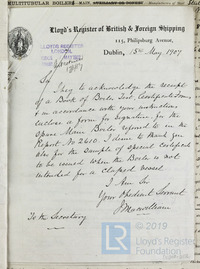 MULTITUBULAR BOILERS - MAIN, AUXILIARY OR DONKEY
Lloyd's Register of British & Foreign Shipping
115, Philipsburg Avenue,
Dublin, 15th May, 1907
LLOYD'S REGISTER
LONDON
MAY
Sir
I beg to acknowledge the receipt
of a Book of Boiler Test Certificate Forms,
& in accordance with your instructions
enclose a form for signature for the
Spare Main Boiler referred to in the
Report No 2610. I desire to thank you
also for the sample of special certificate
to be issued when the Boiler is not
intended for a Classed vessel
I am Sir
Your Obedient Servant
To the Secretary
© 2019
Lloyd's Register
Foundation